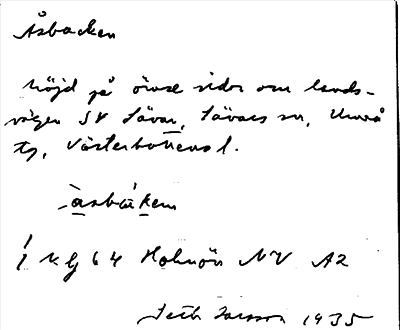 Åsbacken
Höjd på övre sidan om lands-
vägen SV Sävar, Sävars sn, Umeå
tg, Västerbottens l.
àsbák̠en
kbl 64 Holmön NV A2
Seth Larsson 1935